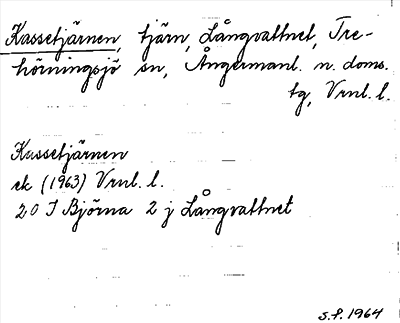 Kassetjärnen, tjärn, Långvattnet, Tre-
hörningsjö sn, Ångermanl. n. doms.
tg, Vrnl. l.
Kassetjärnen
ek (1963) Vrnl. l.
20 I Björna 2 j Långvattnet
S.P. 1964